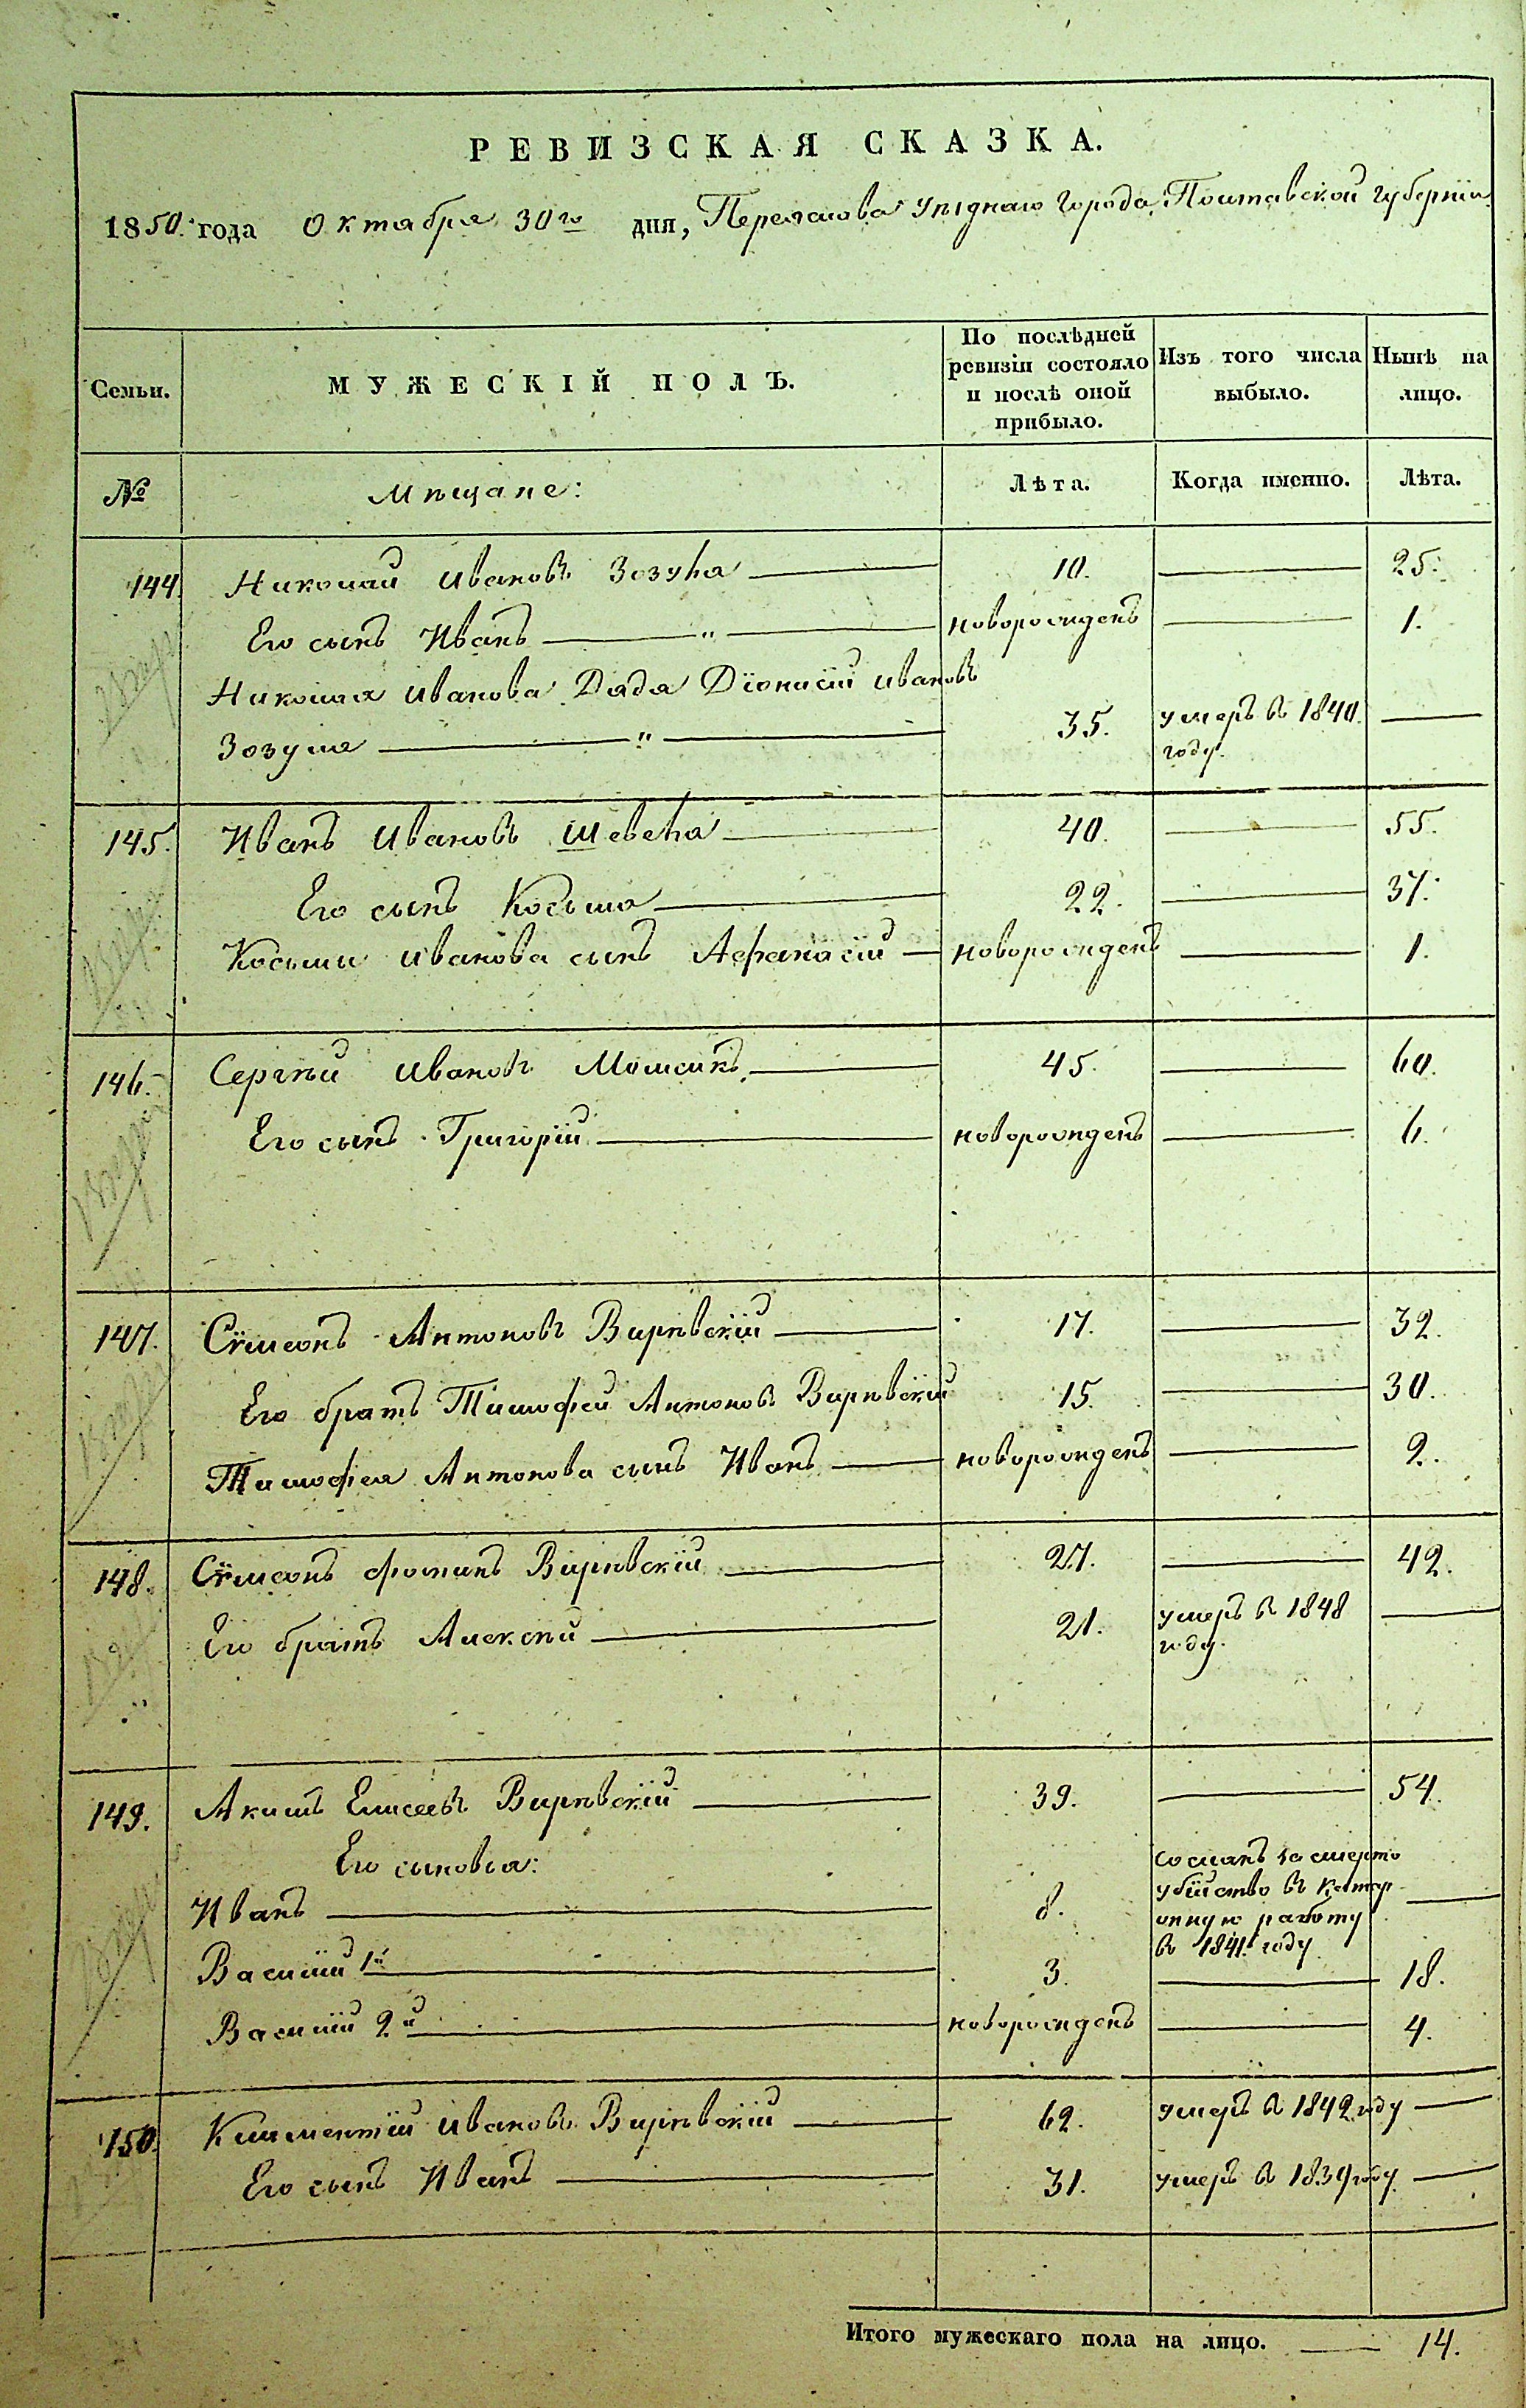 РЕВИЗСКАЯ СКАЗКА.
1850. года Октября 30го дня, Переяслова уѣзднаго города, Полтавской губерніи
Семьи. МУЖЕСКІЙ ПОЛЪ. По послѣдней ревизіи состояло и послѣ оной прибыло. Изъ того числа выбыло. Нынѣ на лицо.
№ Мѣщане: Лѣта. Когда именно. Лѣта.
144. Николай Ивановъ Зозуля 10. 25.
Его сынъ Иванъ " новорожденъ 1.
Николая Иванова Дядя Діонисій Ивановъ
Зозуля " 35. умеръ в 1840. году. 
145. Иванъ Ивановъ Шевеля 40. 55.
Его сынъ Косьма 22. 37.
Косьмы Иванова сынъ Афанасій новорожденъ 1.
146. Сергѣй Ивановъ 45. 60.
Его сынъ Григорій новорожденъ 6.
147. Сѵмеонъ Антоновъ Вирѣвскій 17. 32.
Его братъ Тимофей Антоновъ Вирѣвскій 15. 30.
Тимофея Антонова сынъ Иванъ новорожденъ 2.
148. Сѵмеонъ Фоминъ Вирѣвскій 27. 42.
Его братъ Алексѣй 21. умеръ в 1848 году.
149. Акимъ Елисеевъ Вирѣвскій 39. 54.
Его сыновья:
Иванъ 8. Сосланъ за смерто убійство въ катор жную работу в 1841. году
Василій 1й 3. 18.
Василій 2й новорожденъ 4.
150. Климентій Ивановъ Вирѣвскій 62. умеръ в 1842 году
Его сынъ Иванъ 31. умеръ в 1839 году
Итого мужескаго пола на лицо. 14.